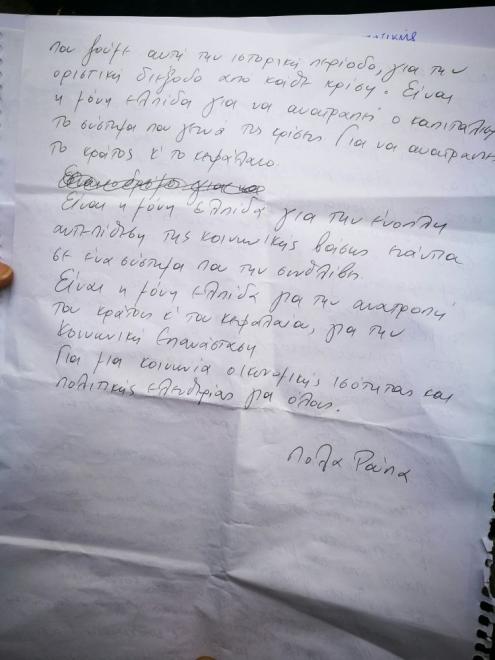 ατικής
που ζούμε αυτή την ιστορική περίοδο, για την
οριστική διέξοδο από κάθε κρίση. Είναι
η μόνη ελπίδα για να ανατραπεί ο καπιταλισμ
το σύστημα που γεννά τις κρίσεις. Για να ανατραπεί
το κράτος κ' το κεφάλαιο.
Είναι η μόνη ελπίδα για την ένοπλη
αντεπίθεση της κοινωνικής βάσης ενάντια
σε ένα σύστημα που την συνθλίβει.
Είναι η μόνη ελπίδα για την ανατροπή
του κράτους κ' του κεφαλαίου, για την
Κοινωνική Επανάσταση
Για μια κοινωνία οικονομικής ισότητας και
πολιτικής ελευθερίας για όλους.
Πόλα Ρούπα